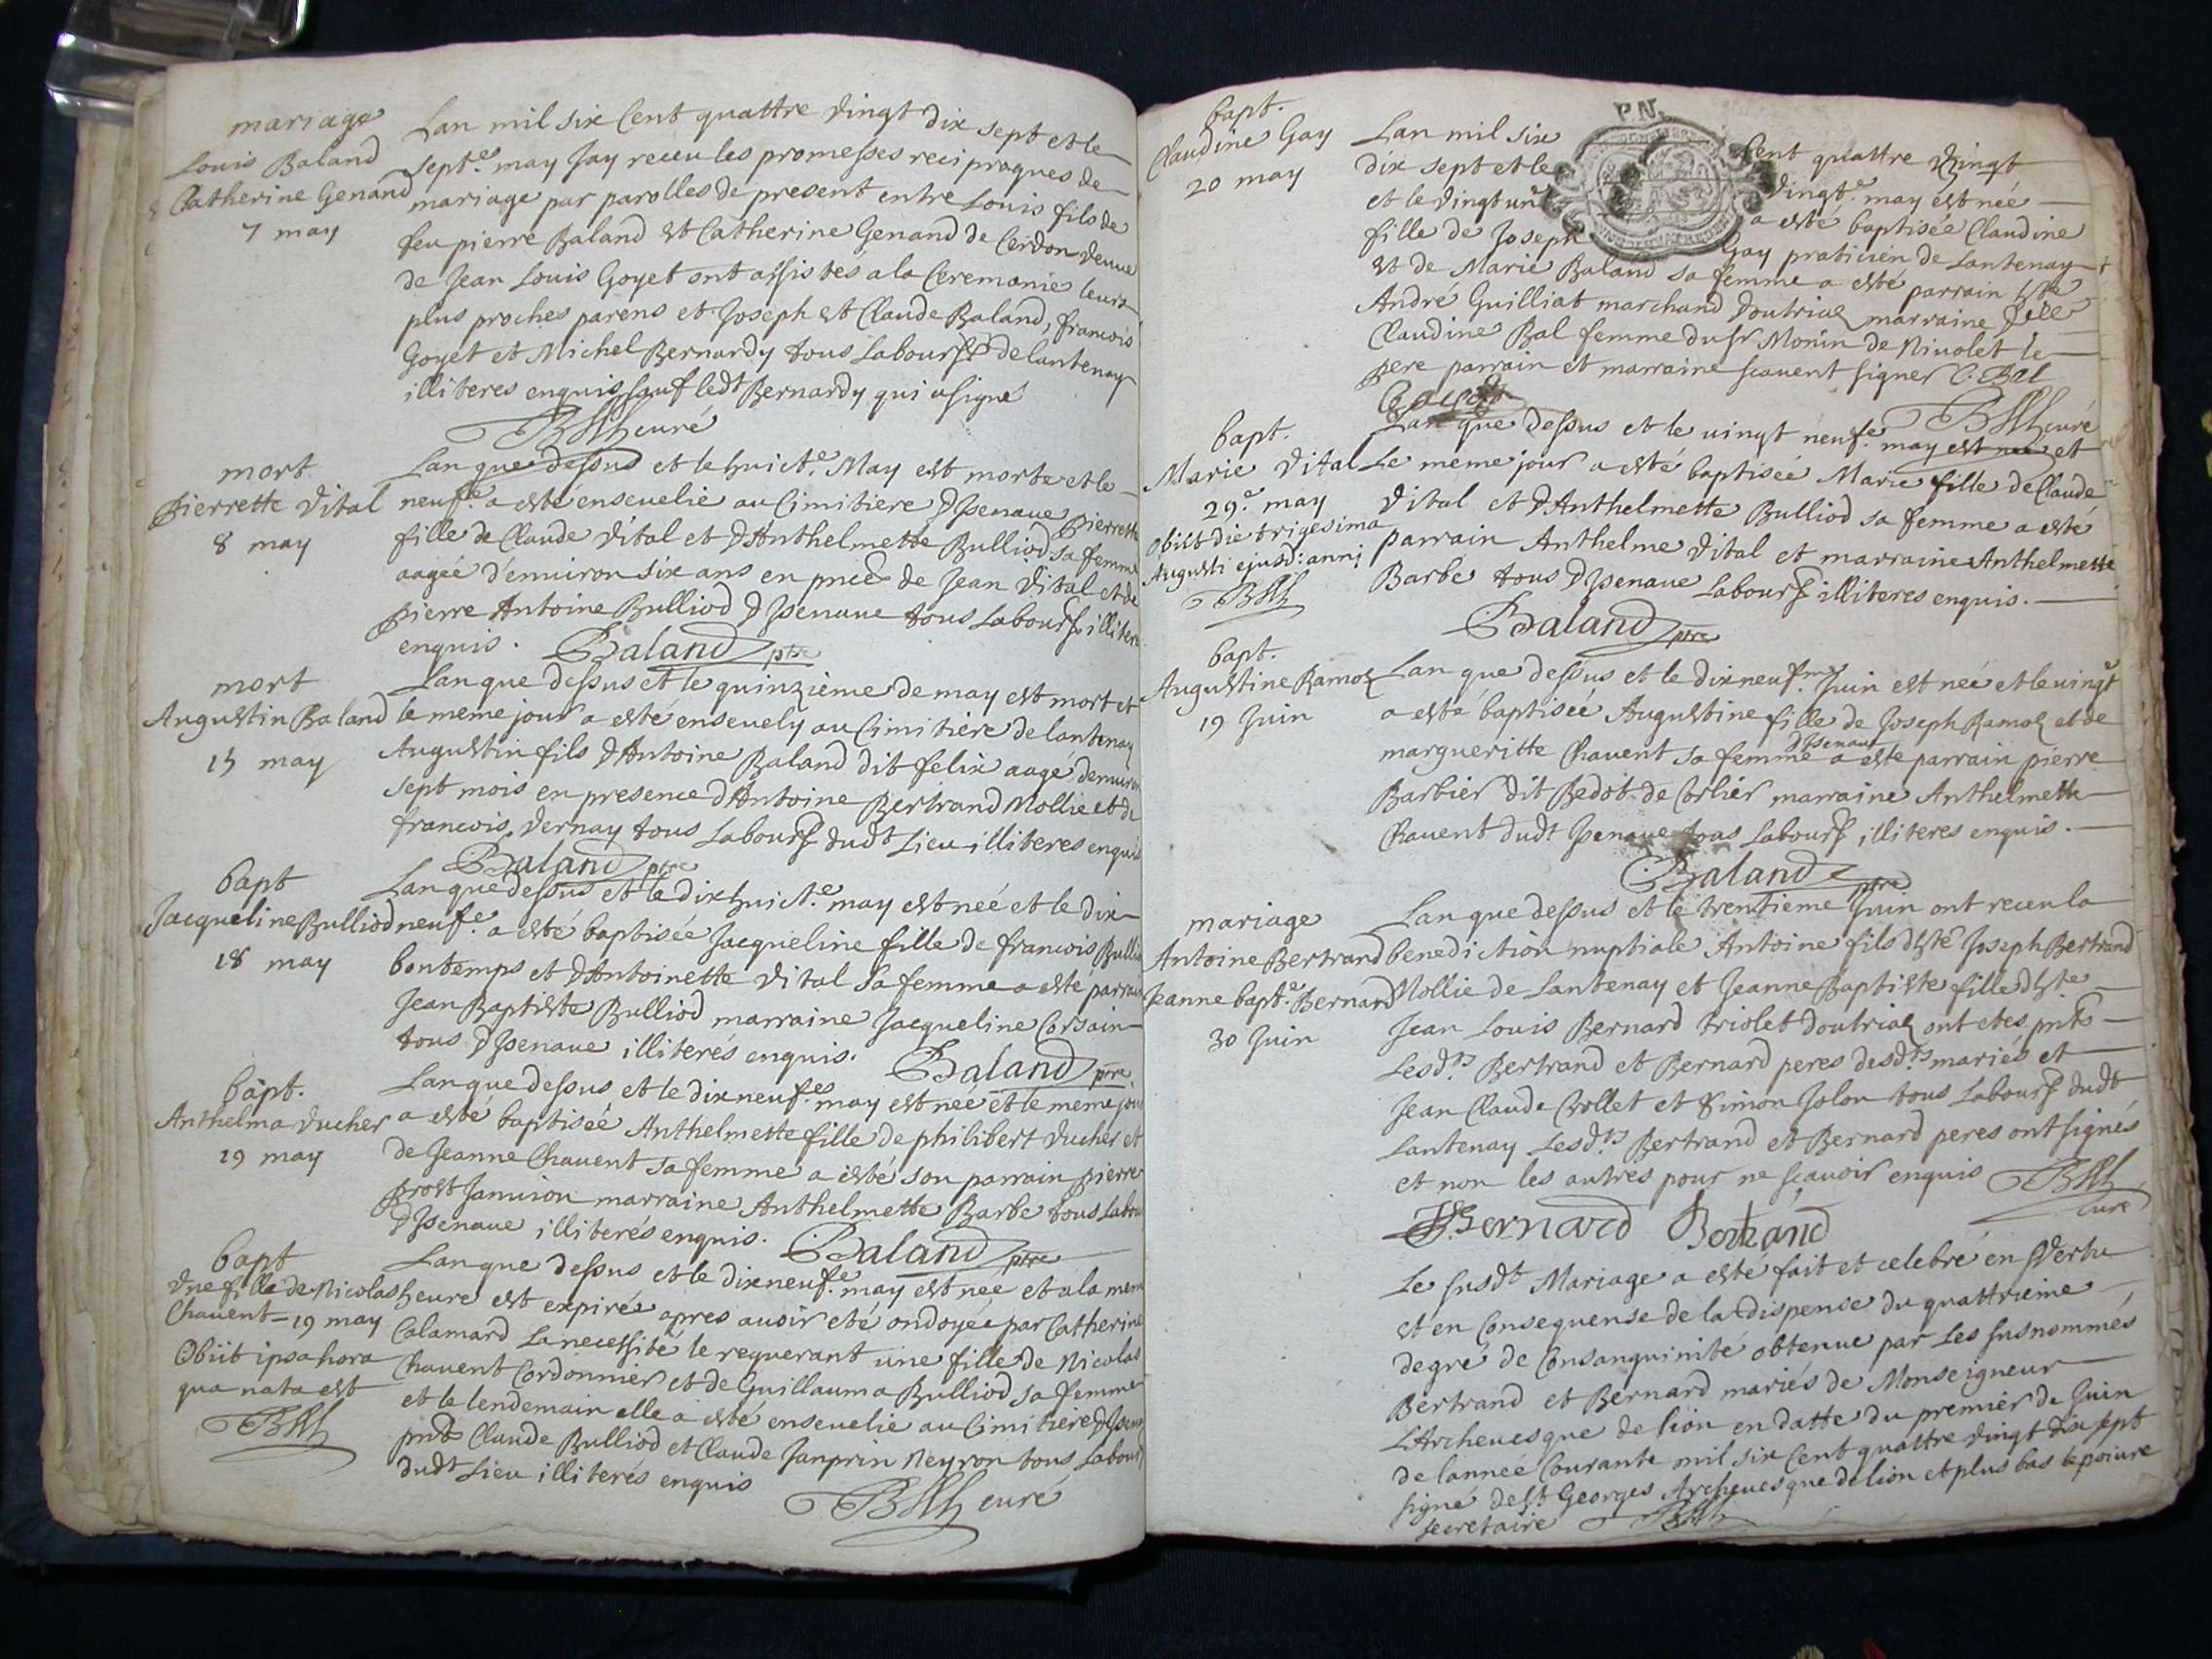 mariage
Louis Baland
Catherine Genand
7 may
Lan mil six Cent quattre vingt dix sept et le
septe. may Jay receu les promesses reciproques de
mariage par parolles de present entre Louis fils de
feu pierre Baland et Catherine Genand de Cerdon veuue
de Jean Louis Goyet ont assistés a la Ceremonie leurs
plus proches parens et Joseph et Claude Baland, francois
Goyet et Michel Bernardy tous Labours de lantenay
illiteres enquis sauf ledt Bernardy qui a signé
curé
mort
pierrette Vital
8 may
Lan que dessus et le huicte. May est morte et le
neufe. a esté enseuelie au Cimitiere d'Jsenaue pierrette
fille de Claude Vital et d'Anthelmette Bulliod sa femme
aagée d'enuiron six ans en pnce de Jean Vital et de
pierre Antoine Bulliod d'Jsenaue tous Labours illiteres
enquis. Baland ptre
mort
Augustin Baland
15 may
Lan que dessus et le quinzième de may est mort et
le meme jour a esté enseuely au Cimitiere de lantenay
Augustin fils d'Antoine Baland dit felix aage denuiron
sept mois en presence d'Antoine Bertrand Mollie et de
francois Vernay tous Labours dudt Lieu illiteres enquis
Baland ptre
bapt
Jacqueline Bulliod
18 may
Lan que dessus et le dix huicte. may est née et le dix
neufe. a esté baptisée Jacqueline fille de francois Bulliod
bontemps et d'Antoinette Vital sa femme a esté parrain
Jean Baptiste Bulliod marraine Jacqueline Corsain
tous d'Jsenaue illiterés enquis. Baland ptre
bapt.
Anthelma Ducher
19 may
Lan que dessus et le dix neufe. may est née et le meme jour
a esté baptisée Anthelmette fille de philibert Ducher et
de Jeanne Chauent sa femme a esté son parrain pierre
prost Januion marraine Anthelmette Barbe tous Labou
d'Jsenaue illiterés enquis. Baland ptre
bapt
Vne fille de Nicolas
Chauent - 19 may
Obiit ipsa hora
qua nata est
Lan que dessus et le dix neufe. may est née et a la meme
heure est expirée apres auoir eté ondoyée par Catherine
Calamard la necessité le requerant une fille de Nicolas
Chauent Cordonnier et de Guillauma Bulliod sa femme
et le lendemain elle a esté enseuelie au Cimitiere d'Jsena
pnts Claude Bulliod et Claude Janprin Neyron tous Labour
dudt Lieu illiterés enquis
curé
bapt.
Claudine Gay
20 may
P.N.
Lan mil six Cent quattre Vingt
dix sept et le Vingte. may est née
et le vingt une a esté baptisée Claudine
fille de Joseph Gay praticien de Lantenay
et de Marie Baland sa femme a esté parrain
André Guilliat marchand doutriaz marraine
Claudine Bal femme du sr Monin de Niuolet le
pere parrain et marraine scauent signer C. Bal
curé
bapt.
Marie Vital
29e. may
Obiit die trigesima
Augusti ejusd. anni
Lan que dessus et le uingt neufe. may est née et
Le meme jour a esté baptisée Marie fille de Claude
Vital et d'Anthelmette Bulliod sa femme a esté
parrain Anthelme Vital et marraine Anthelmette
Barbe tous d'Jsenaue Labours illiteres enquis.
Baland ptre
bapt.
Augustine Ramoz
19 Juin
Lan que dessus et le dix neufme. Juin est née et le uingt
a esté baptisée Augustine fille de Joseph Ramoz et de
margueritte Chauent sa femme d'Jsenaue a esté parrain pierre
Barbier dit Bedot de Corlier marraine Anthelmette
Chauent dudt Jsenaue tous Labours illiteres enquis.
Baland ptre
mariage
Antoine Bertrand
Jeanne bapte. Bernard
30 Juin
Lan que dessus et le trentieme Juin ont receu la
benediction nuptiale Antoine fils d'hte Joseph Bertrand
Mollie de Lantenay et Jeanne Baptiste fille d'hte
Jean Louis Bernard triolet doutriaz ont etes pnts
Lesdts Bertrand et Bernard peres desdts mariés et
Jean Claude Crollet et Simon Jolon tous Labours dudt
Lantenay Lesdts Bertrand et Bernard peres ont signés
et non les autres pour ne scauoir enquis
curé
Bernard Bertrand
Le susdt Mariage a esté fait et celebré en Vertu
et en Consequense de la dispense du quattrieme
degré de Consanguinité obtenue par les susnommés
Bertrand et Bernard mariés de Monseigneur
L'Archeuesque de lion en datte du premier de Juin
de lannée Courante mil six Cent quattre vingt dix sept
signé de St Georges Archeuesque de lion et plus bas
secretaire